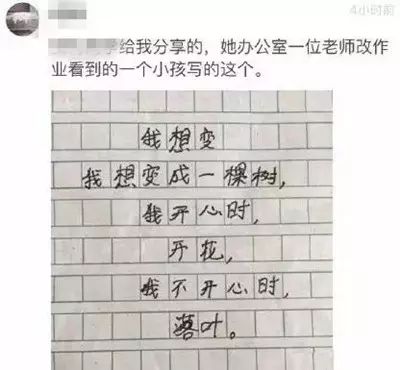 4小时前
给我分享的，她办公室一位老师改作
业看到的一个小孩写的这个。
我想变
我想变成一棵树，
我开心时，
开花，
我不开心时，
落叶。